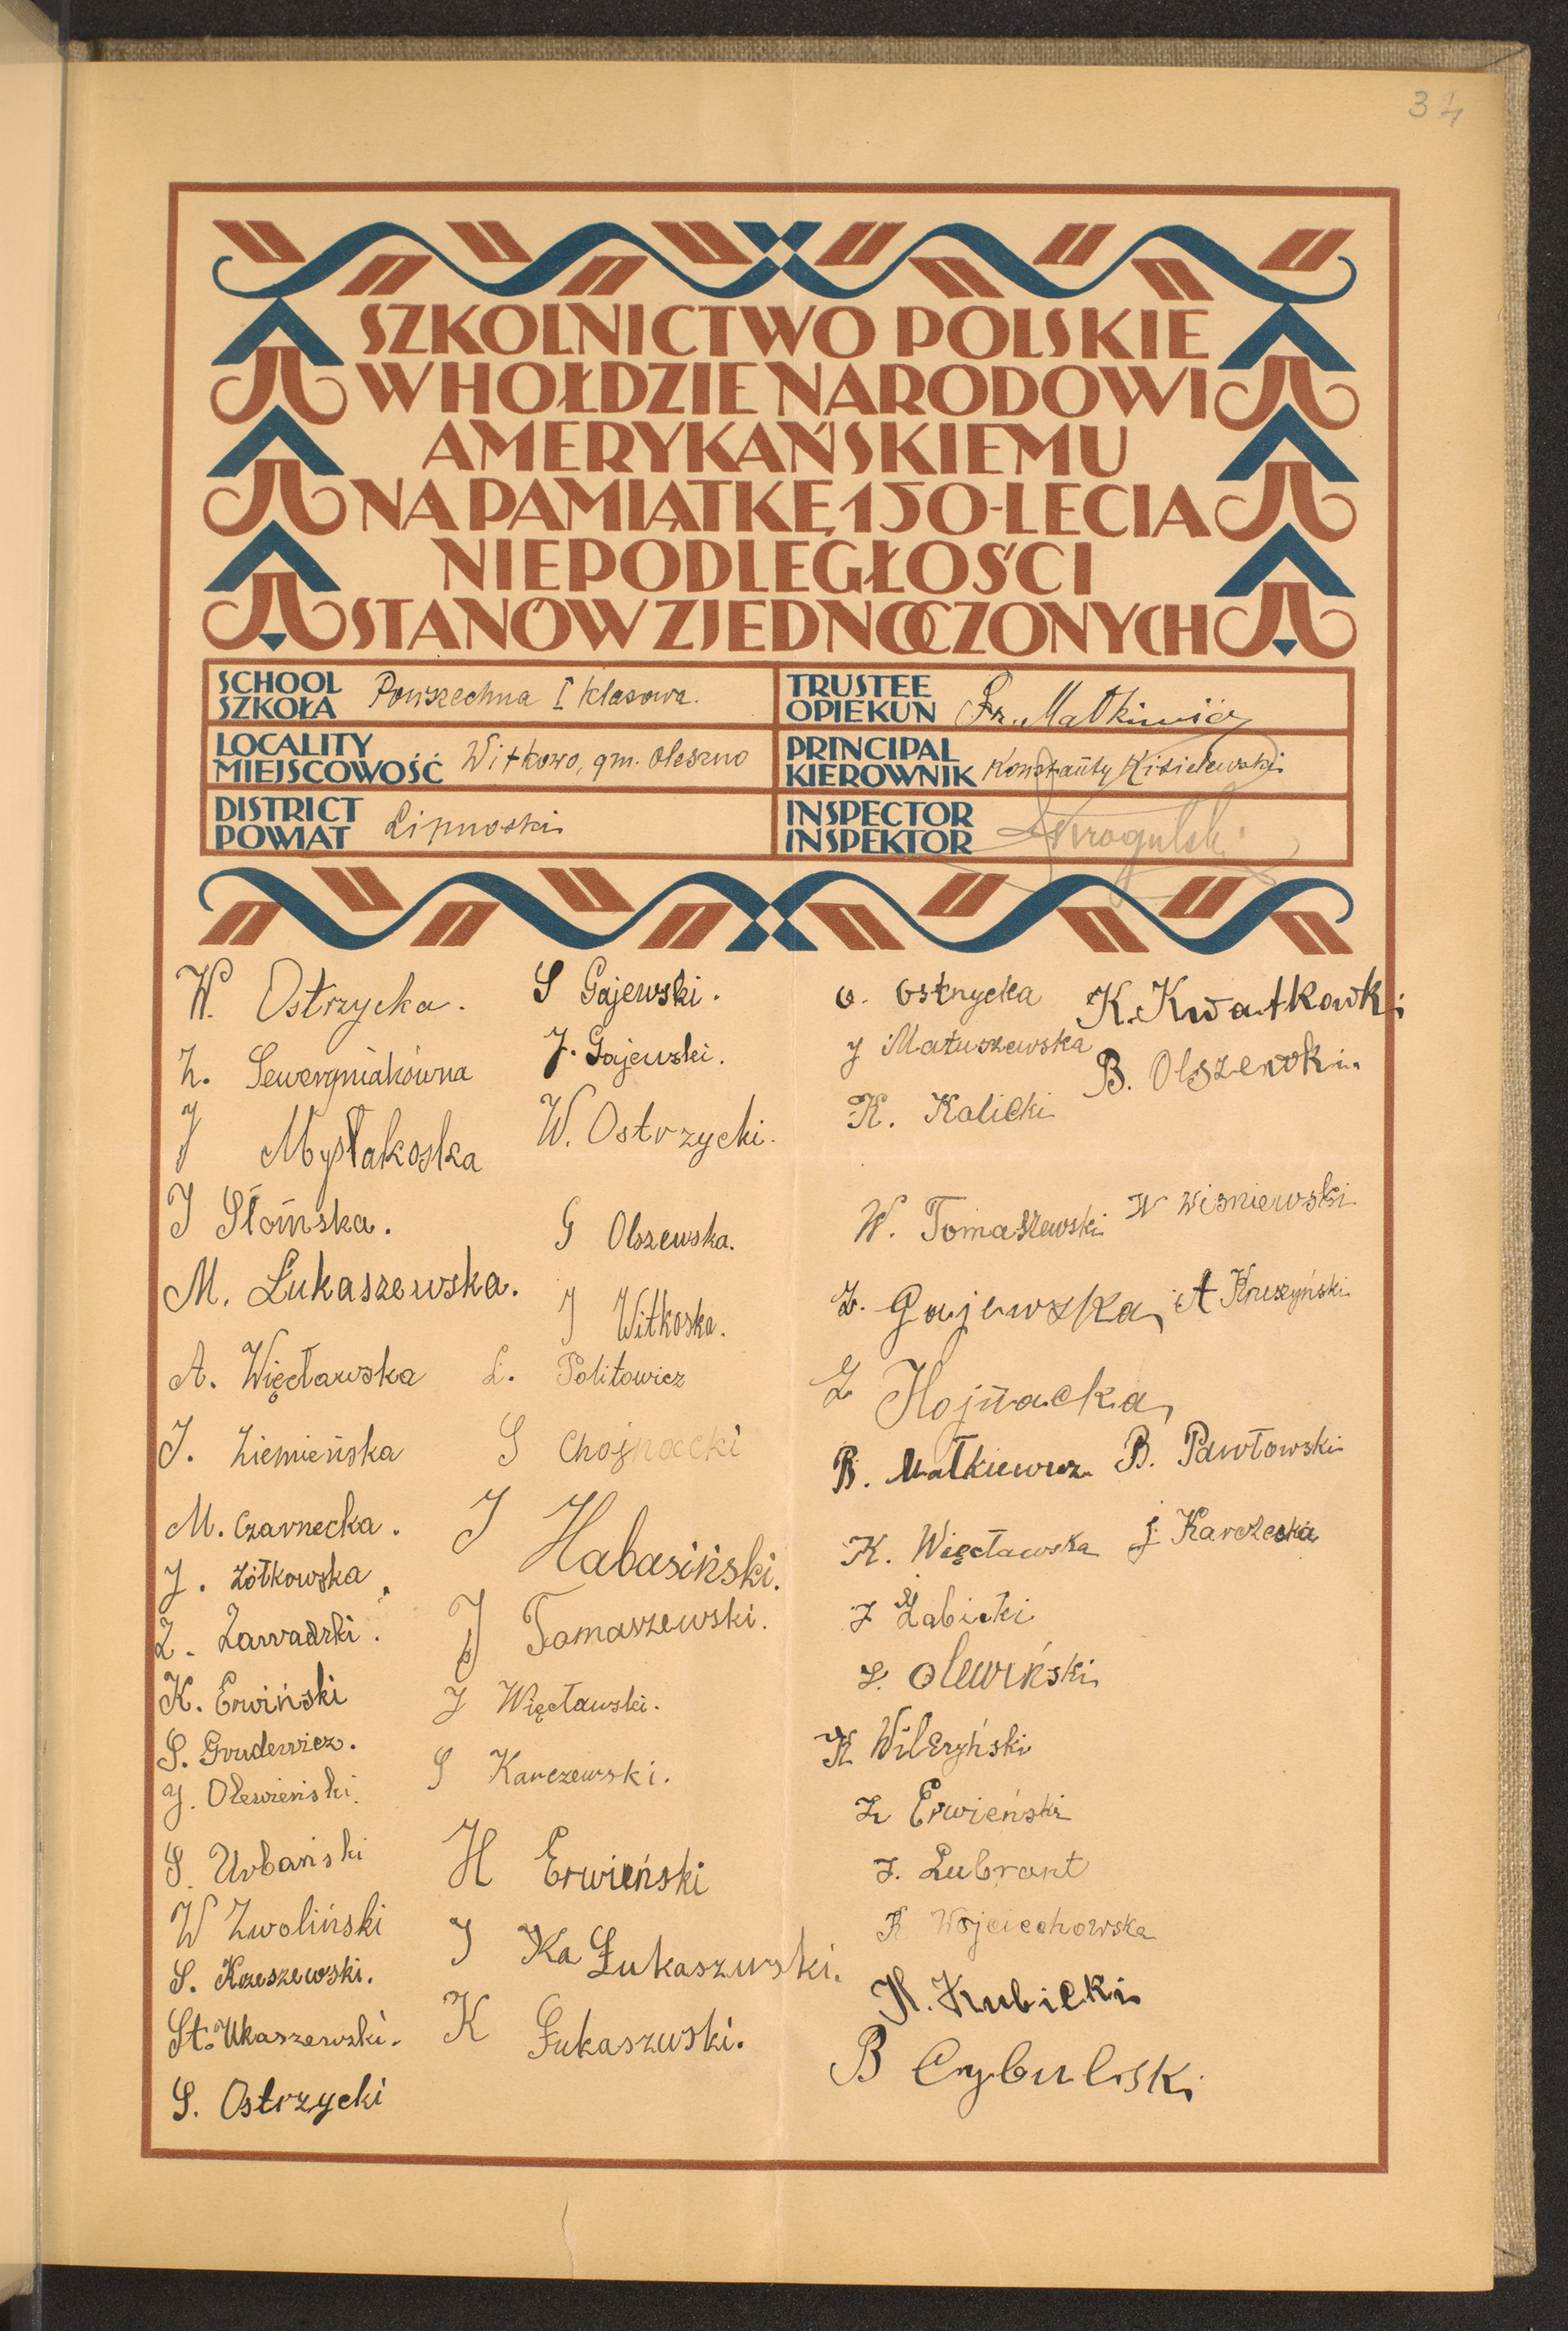 34
SZKOLNICTWO POLSKIE
W HOŁDZIE NARODOWI
AMERYKAŃSKIEMU
NA PAMIĄTKĘ 150-LECIA
NIEPODLEGŁOŚCI
STANÓW ZJEDNOCZONYCH
SCHOOL
SZKOŁA Powszechna I klasowa.
TRUSTEE
OPIEKUN Fr. Matkiewicz
LOCALITY
MIEJSCOWOŚĆ Witkowo, gm. Oleszno
PRINCIPAL
KIEROWNIK Konstanty Kisielewski
DISTRICT
POWIAT Lipnoski
INSPECTOR
INSPEKTOR
W. Ostrzycka.
Z. Sewergniakówna
J Mysłakoska
J Słońska.
M. Łukaszewska.
A. Więcławska
J. Ziemieńska
M. Czarnecka.
J. Żółkowska
Z. Zawadzki.
K. Erwiński
S. Grudewicz.
J. Olewieński.
S. Urbański
W Zwoliński
S. Kaeszewski.
St. Ukaszewski.
S. Ostrzycki
S Gajewski.
J. Gajewski.
W. Ostrzycki.
G Olszewska.
J Witkoska.
L. Politowicz
S Chojnacki
J Habasiński.
J Tomaszewski.
J Więcławski.
S Karczewski.
H Erwieński
J Ka Łukaszwski.
K Łukaszwski.
O. Ostrycka
J Matuszewska
K. Kalicki
W. Tomaszewski
Z. Gajewska
Z Hojnacka
B. Matkiewicz
K. Więcławska
J Żabicki
Z. Olewiński
K Wilczyński
Z Erwieński
J. Lubrant
K Wojciechowska
H. Kubicki
B Cybulski
K. Kwatkowki
B. Olszewki
W Wisniewski
A Kruszyński
B. Pawłowski
J. Karczeska